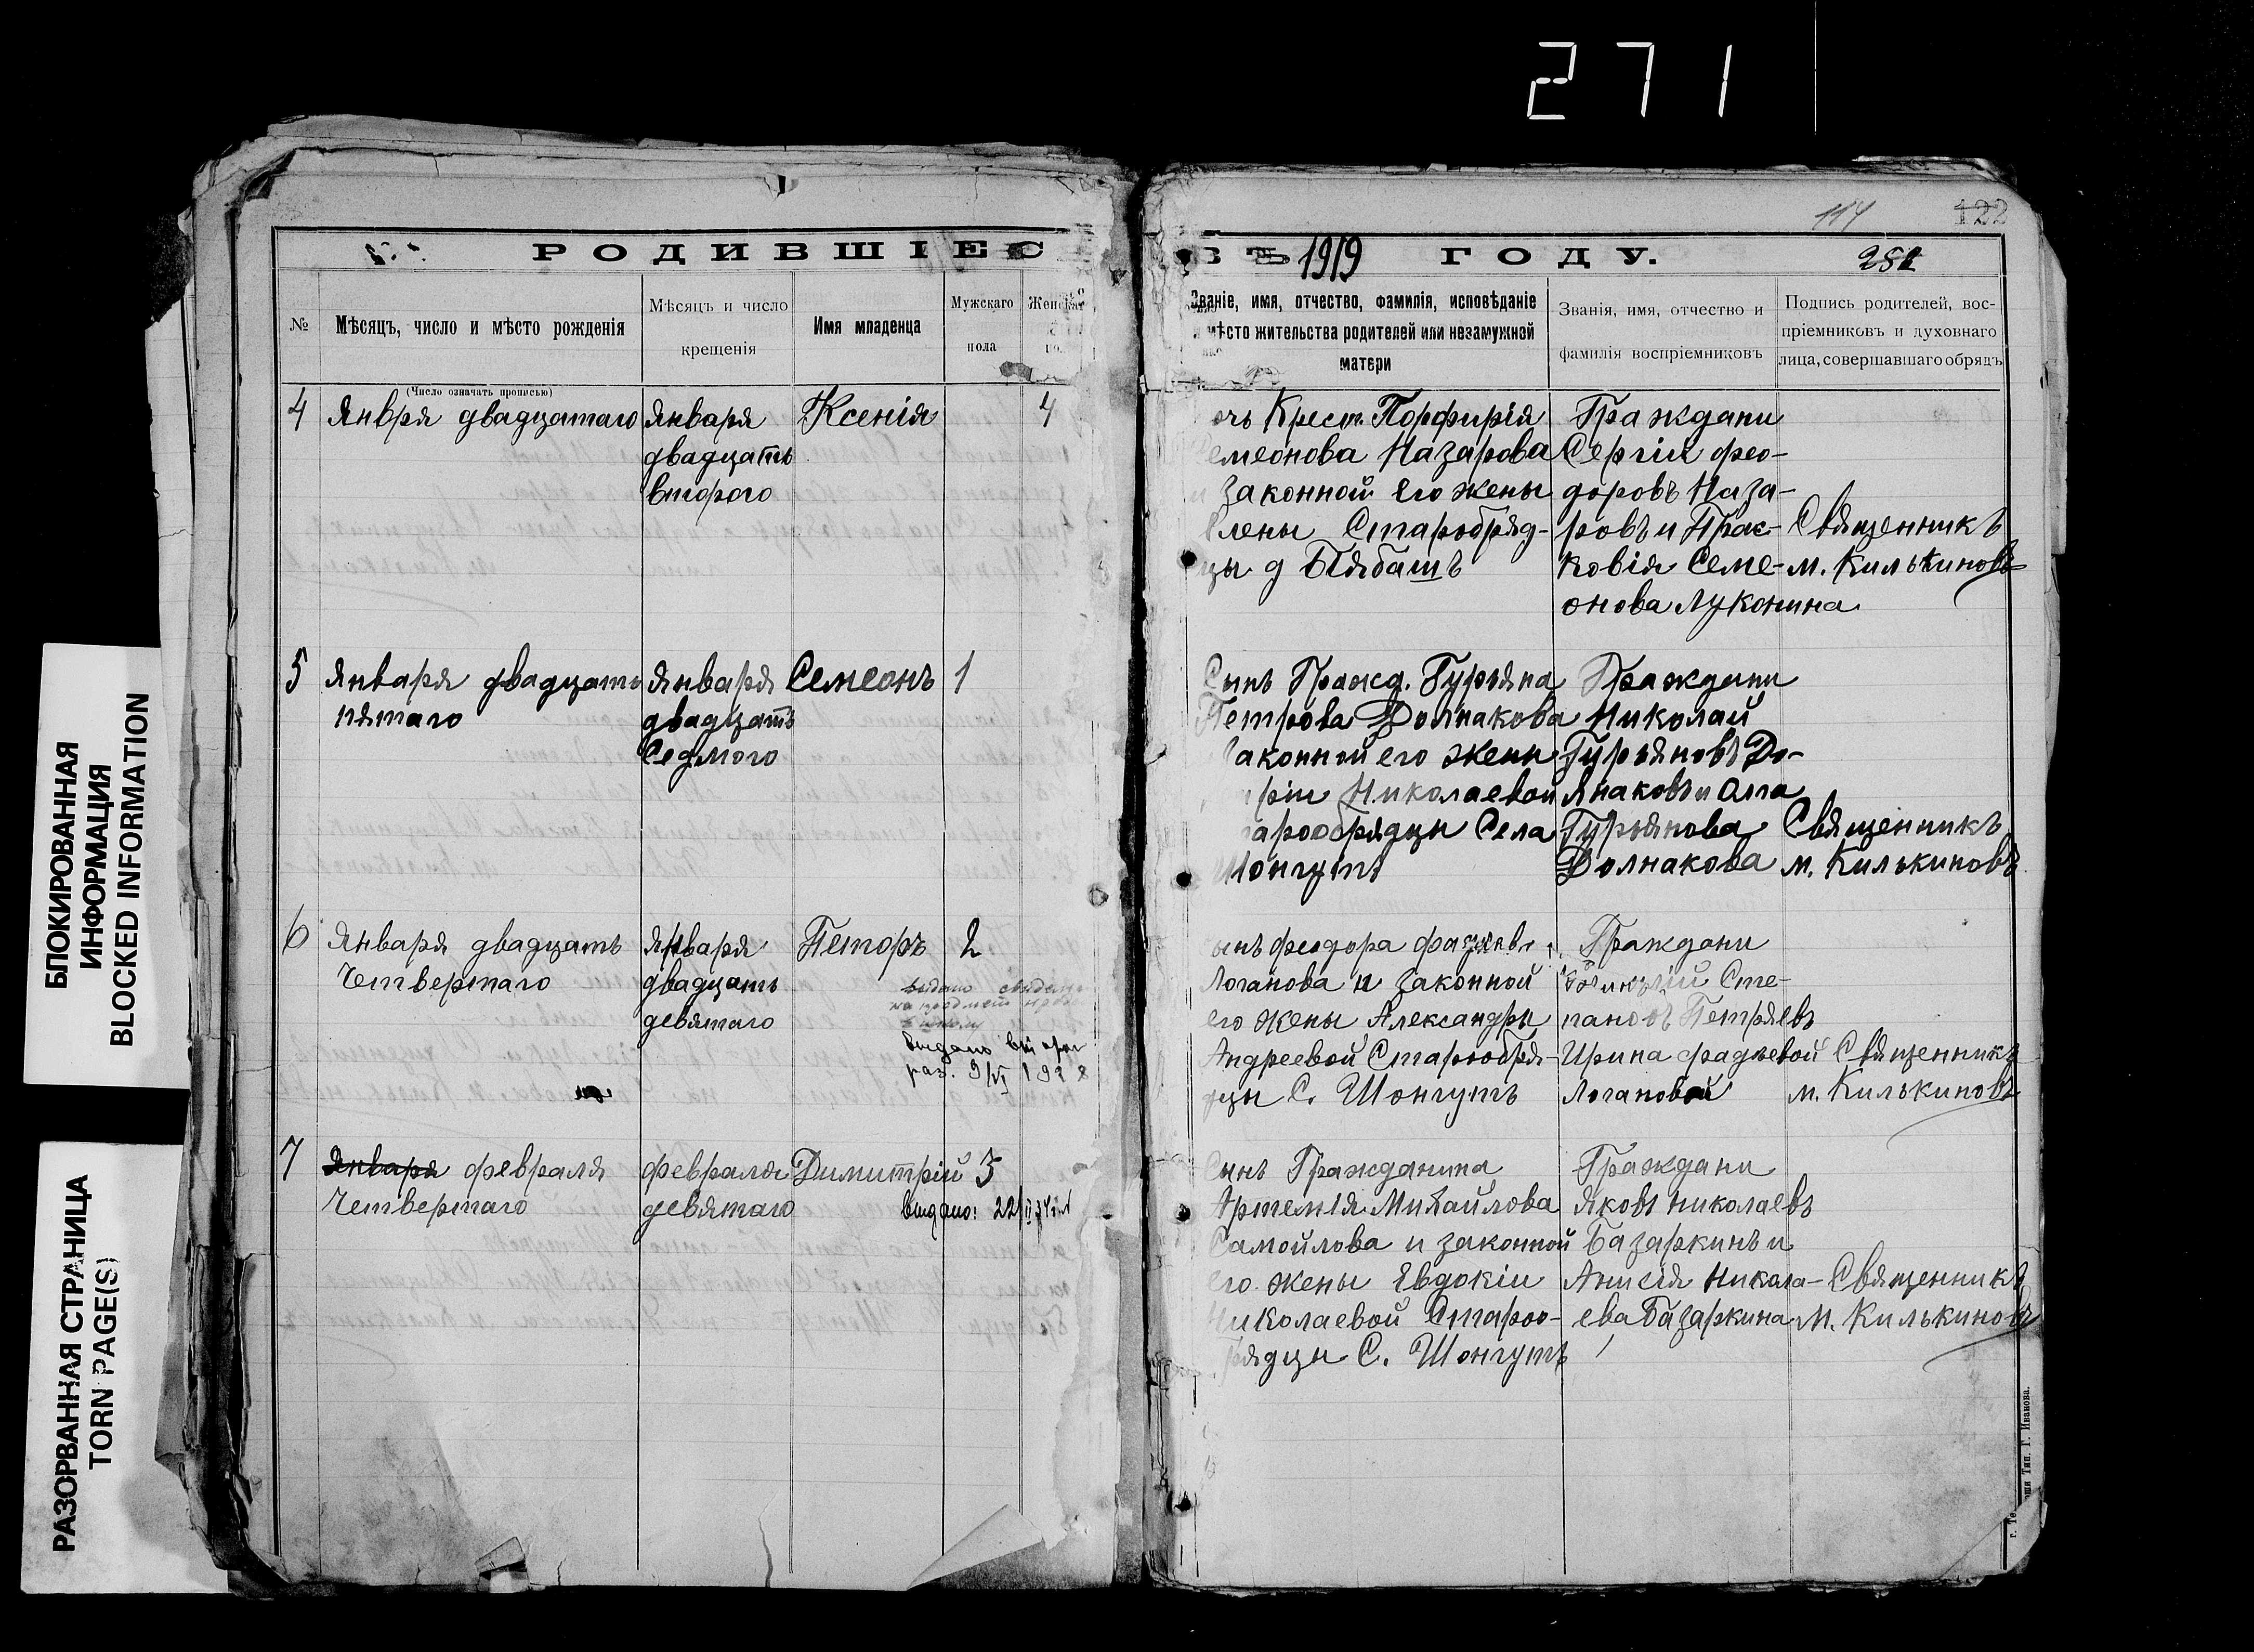 271
114
122
РОДИВШІЕС
ВЪ 1919 ГОДУ.
№
Мѣсяцъ, число и мѣсто рожденія
Мѣсяцъ и число
крещенія
Имя младенца
Мужскаго
пола
Званіе, имя, отчество, фамилія, исповѣданіе
мѣсто жительства родителей или незамужней
матери
Званія, имя, отчество и
фамилія воспріемниковъ
Подпись родителей, вос-
пріемниковъ и духовнаго
лица, совершавшаго обрядъ
(Число означать прописью)
4
Января двадцатаго
Января
двадцать
второго
Ксенія
4
очь Крест. Порфирія
емеонова Назарова
законной его жены
лены Старобряд-
цы д Біябашъ
Граждани
Сергія Фео-
доровъ Наза-
ровъ и Прас-
ковія Семе-
онова Луконина
Священникъ
М. Килькиновъ
5
Января двадцать
пятаго
Января
двадцать
Седмого
Семеонъ
1
Сынъ Гражд. Гурьяна
Петрова Долнакова
законной его жены
ріи Николаевой
арообрядцы Села
Шонгутъ
Граждани
Николай
Гурьяновъ До-
лнаковъ и Олга
Гурьянова
Долнакова
Священникъ
М. Килькиновъ
6
Января двадцать
Четвертаго
Января
двадцать
девятаго
Петоръ
2
выдано
раз. 9/VI 1928
ынъ Феодора
Логанова и законной
его жены Александры
Андреевой Старообря-
цы С. Шонгутъ
Граждани
Сте-
пановъ Петряевъ
Ирина Фадѣевой
Логановой
Священникъ
М. Килькиновъ
7
Января Февраля
Четвертаго
Февраля
девятаго
Димитрій
3
выдано: 22
Сынъ Гражданина
Артемія Михайлова
Самойлова и законной
его жены Евдокіи
Николаевой Староо-
рядцы С. Шонгутъ
Граждани
Яковъ Николаевъ
Базаркинъ и
Анисія Никола-
ева Базаркина
Священникъ
М. Килькиновъ
Тип. Г. Иванова.
БЛОКИРОВАННАЯ
ИНФОРМАЦИЯ
BLOCKED INFORMATION
РАЗОРВАННАЯ СТРАНИЦА
TORN PAGE(S)